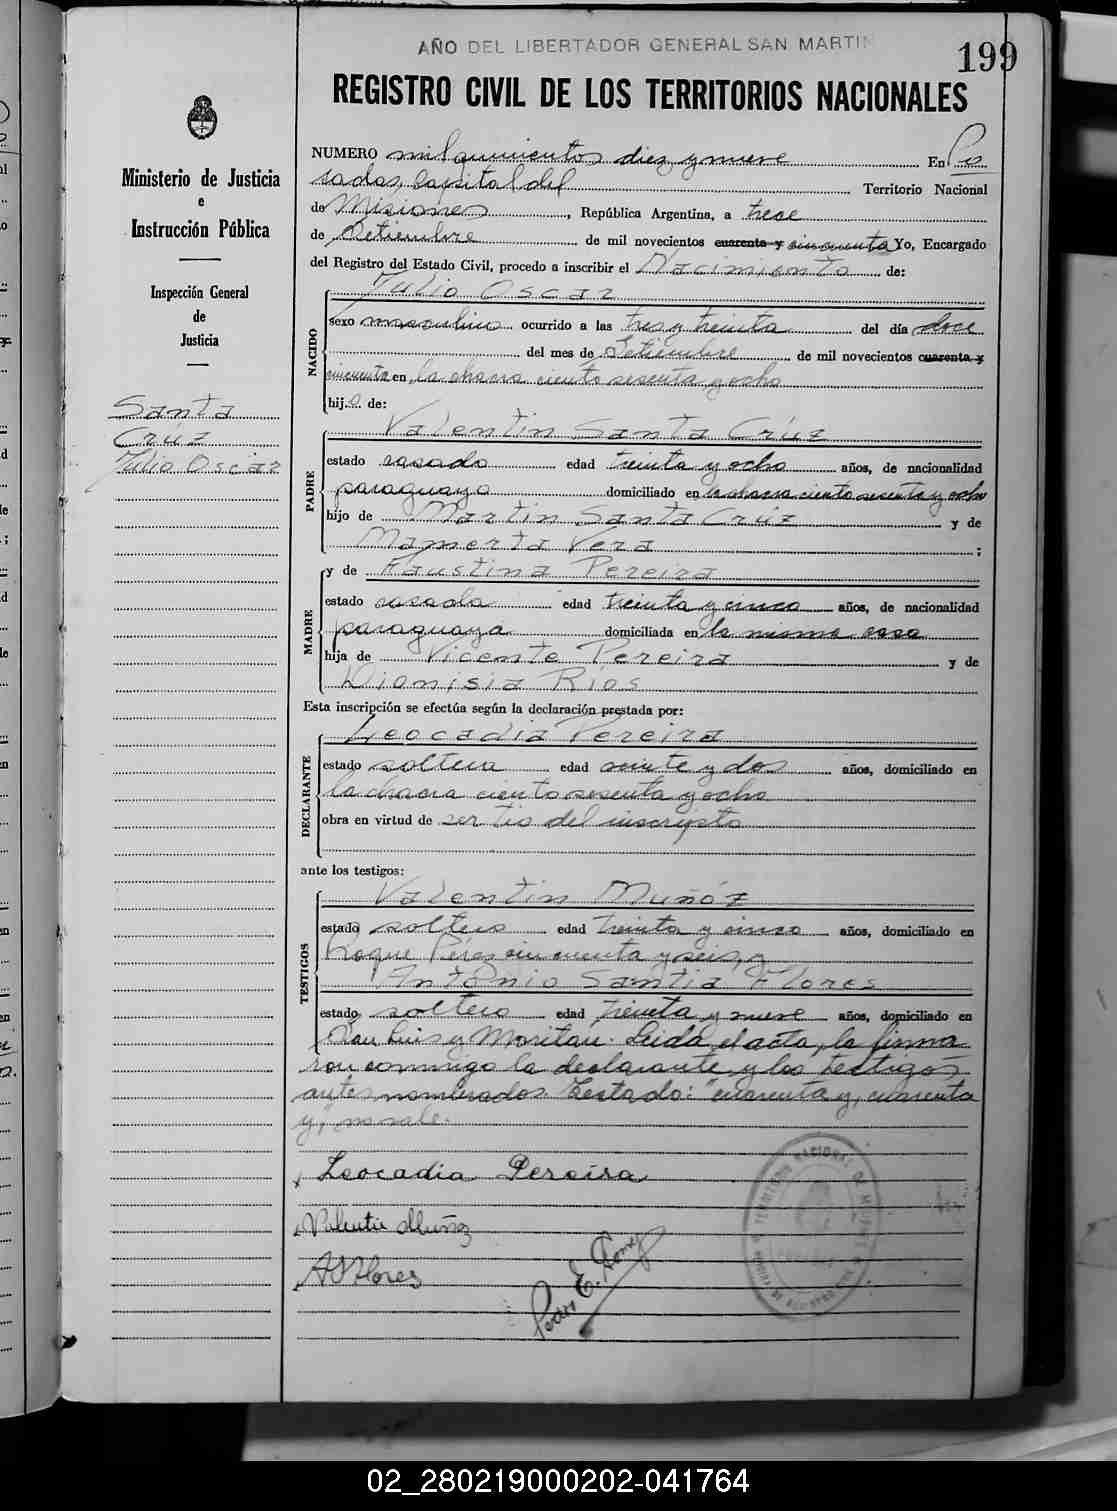 AÑO DEL LIBERTADOR GENERAL SAN MARTIN
199
REGISTRO CIVIL DE LOS TERRITORIOS NACIONALES
Ministerio de Justicia
e
Instrucción Pública
Inspección General
de
Justicia
Santa
Crúz
Julio Oscar
NUMERO mil quinientos diez y nueve En Po
sadas, capital del Territorio Nacional
de Misiones, República Argentina, a trece
de Setiembre de mil novecientos cuarenta y cincuenta Yo, Encargado
del Registro del Estado Civil, procedo a inscribir el Nacimiento de:
NACIDO
Julio Oscar
sexo masculino ocurrido a las tres y treinta del día doce
del mes de Setiembre de mil novecientos cuarenta y
cincuenta en, la chacra ciento sesenta y ocho
hijo de:
PADRE
Valentin Santa Crúz
estado casado edad treinta y ocho años, de nacionalidad
paraguaya domiciliado en la chacra ciento sesenta y ocho
hijo de Martin Santa Crúz y de
Mamerta Vera ;
MADRE
y de Faustina Pereira
estado casada edad treinta y cinco años, de nacionalidad
paraguaya domiciliada en la misma casa
hija de Vicente Pereira y de
Dionisia Ríos
Esta inscripción se efectúa según la declaración prestada por:
DECLARANTE
Leocadia Pereira
estado soltera edad veinte y dos años, domiciliado en
la chacra ciento sesenta y ocho
obra en virtud de ser tia del inscripto
ante los testigos:
TESTIGOS
Valentin Muñóz
estado soltero edad treinta y cinco años, domiciliado en
Roque Pérez cincuenta y seis, y
Antonio Santia Flores
estado soltero edad treinta y nueve años, domiciliado en
San Luis y Moritan. Leida el acta, la firma
ron conmigo la declarante y los testigos
antes nombrados. Testado: "cuarenta y, cuarenta
y", no vale.
Leocadia Pereira
Valentin Muñoz
A S Flores
02_280219000202-041764